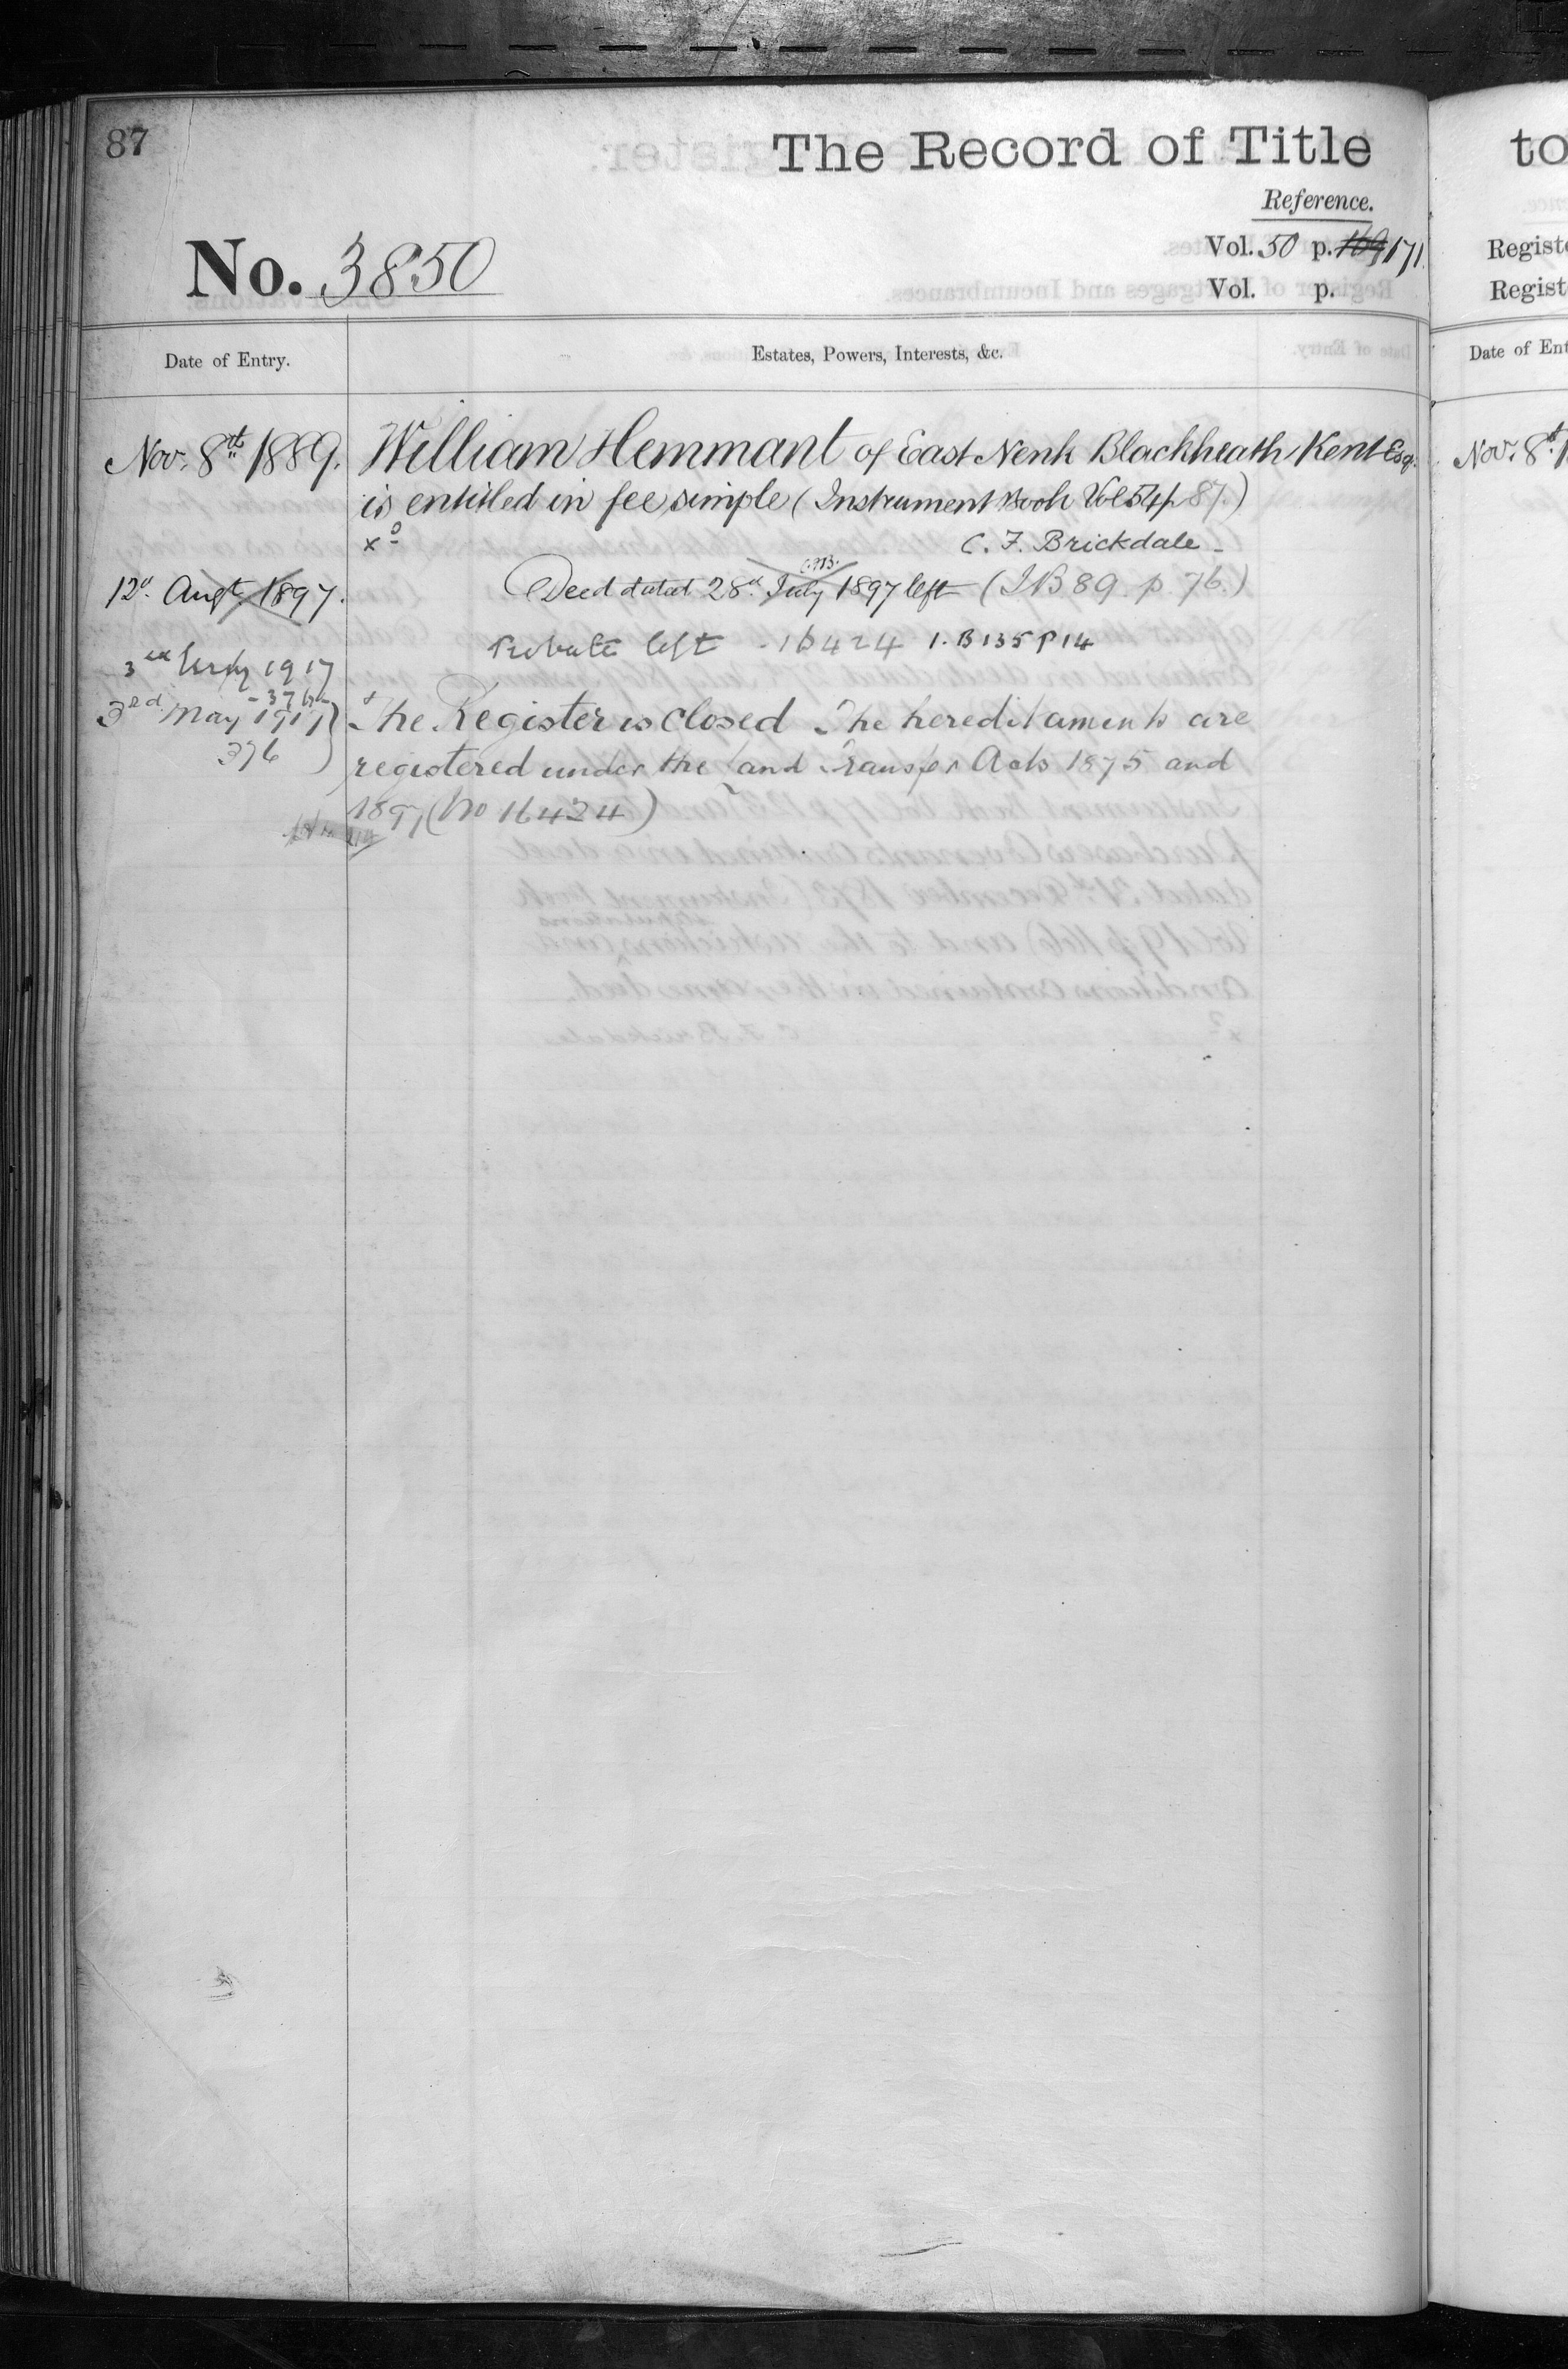 87
The Record of Title
Reference.
No. 3850
Vol. 50 p. 169 171.
Vol. p.
Date of Entry.
Estates, Powers, Interests, &c.
Nov. 8th 1889. William Hemmant of East Nenk Blackheath Kent Esq.
is entitled in fee simple (Instrument Book Vol 54 p 87.)
C. F. Brickdale
12th Augt. 1897. Deed dated 28th July 1897 left (I B 89. p. 76.)
1917 Probate left 16424 I. B 135 P 14
376
3rd May 1917 The Register is closed The hereditaments are
376 registered under the Land Transfer Acts 1875 and
1897 (No 16424)
to
Regist
Regist
Date of Ent
Nov. 8th